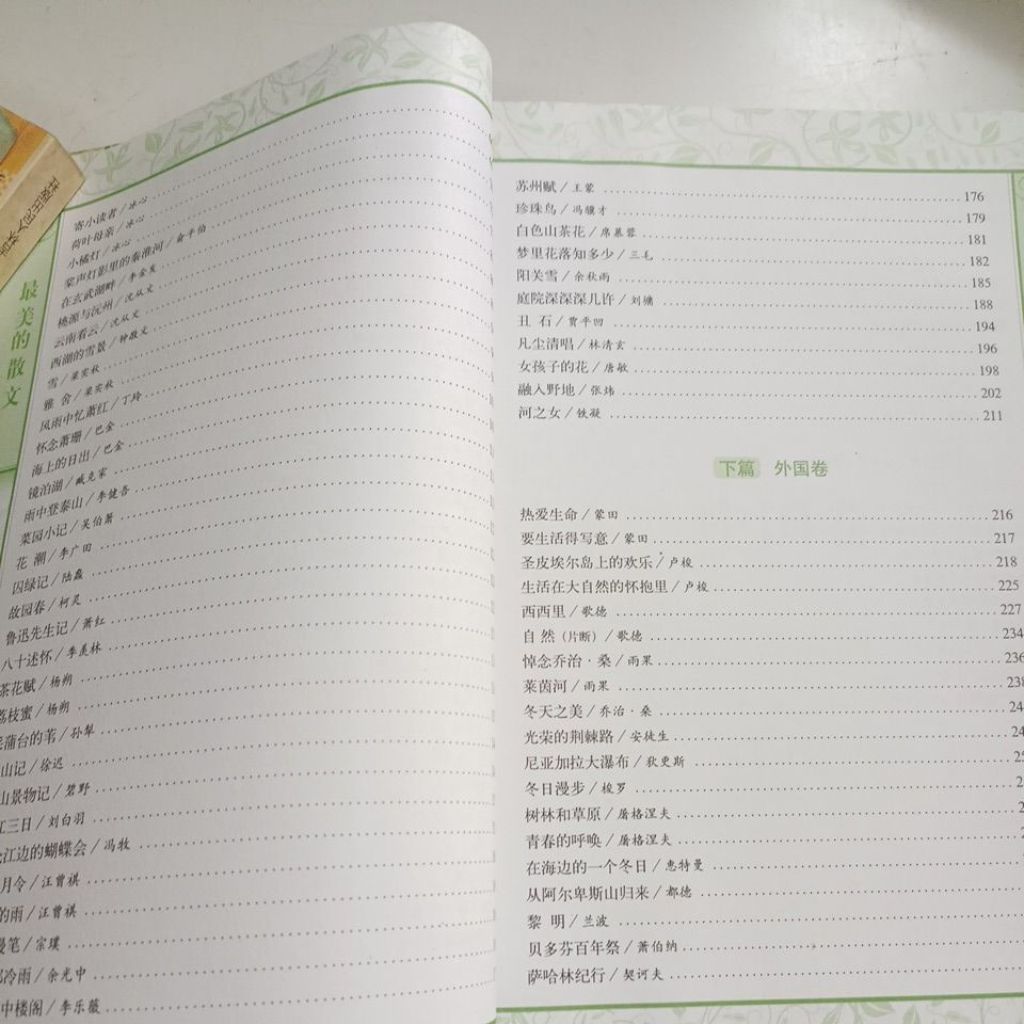 最美的散文
寄小读者/冰心
荷叶母亲/冰心
小橘灯/冰心
桨声灯影里的秦淮河/俞平伯
在玄武湖畔/李金发
桃源与沅州/沈从文
云南看云/沈从文
西湖的雪景/钟敬文
雪/梁实秋
雅 舍/梁实秋
风雨中忆萧红/丁玲
怀念萧珊/巴金
海上的日出/巴金
镜泊湖/臧克家
雨中登泰山/李健吾
菜园小记/吴伯箫
花 潮/李广田
囚绿记/陆蠡
故园春/柯灵
鲁迅先生记/萧红
八十述怀/季羡林
茶花赋/杨朔
荔枝蜜/杨朔
蒲台的苇/孙犁
山记/徐迟
山景物记/碧野
江三日/刘白羽
江边的蝴蝶会/冯牧
月令/汪曾祺
的雨/汪曾祺
漫笔/宗璞
冷雨/余光中
中楼阁/李乐薇
苏州赋/王蒙 176
珍珠鸟/冯骥才 179
白色山茶花/席慕蓉 181
梦里花落知多少/三毛 182
阳关雪/余秋雨 185
庭院深深深几许/刘墉 188
丑 石/贾平凹 194
凡尘清唱/林清玄 196
女孩子的花/唐敏 198
融入野地/张炜 202
河之女/铁凝 211
下篇 外国卷
热爱生命/蒙田 216
要生活得写意/蒙田 217
圣皮埃尔岛上的欢乐/卢梭 218
生活在大自然的怀抱里/卢梭 225
西西里/歌德 227
自 然(片断)/歌德 234
悼念乔治·桑/雨果 236
莱茵河/雨果 238
冬天之美/乔治·桑 24
光荣的荆棘路/安徒生 24
尼亚加拉大瀑布/狄更斯 25
冬日漫步/梭罗
树林和草原/屠格涅夫
青春的呼唤/屠格涅夫
在海边的一个冬日/惠特曼
从阿尔卑斯山归来/都德
黎 明/兰波
贝多芬百年祭/萧伯纳
萨哈林纪行/契诃夫